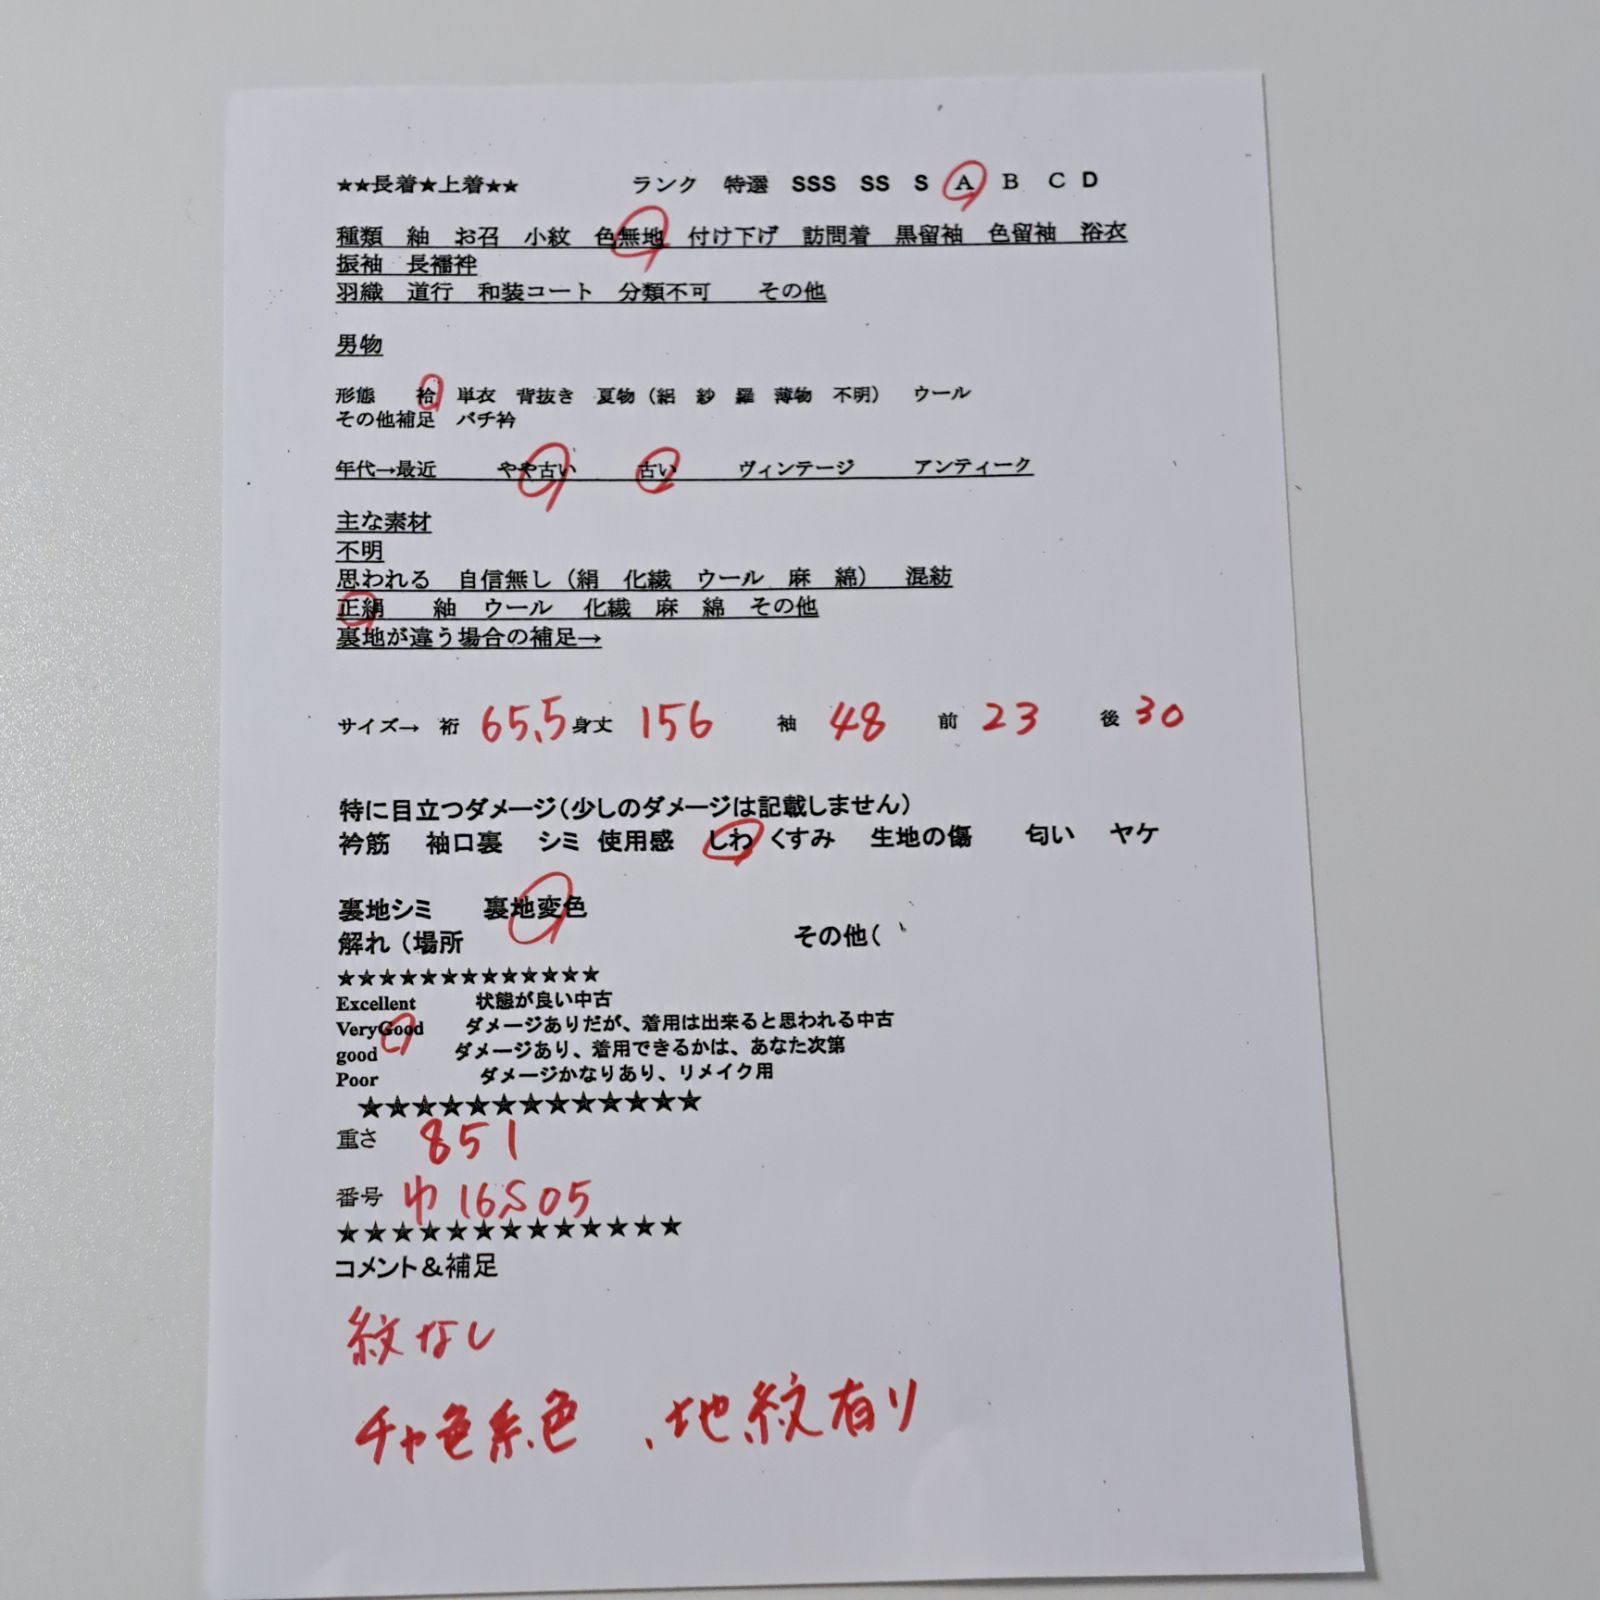 ★★長着★上着★★　ランク　特選　SSS　SS　S　A　B　C　D
種類　紬　お召　小紋　色無地　付け下げ　訪問着　黒留袖　色留袖　浴衣
振袖　長襦袢
羽織　道行　和装コート　分類不可　その他
男物
形態　袷　単衣　背抜き　夏物（絽　紗　羅　薄物　不明）　ウール
その他補足　バチ衿
年代→最近　やや古い　古い　ヴィンテージ　アンティーク
主な素材
不明
思われる　自信無し（絹　化繊　ウール　麻　綿）　混紡
正絹　紬　ウール　化繊　麻　綿　その他
裏地が違う場合の補足→
サイズ→　裄　65.5　身丈　156　袖　48　前　23　後　30
特に目立つダメージ（少しのダメージは記載しません）
衿筋　袖口裏　シミ　使用感　しわ　くすみ　生地の傷　匂い　ヤケ
裏地シミ　裏地変色
解れ（場所　その他（
★★★★★★★★★★★★★
Excellent　状態が良い中古
VeryGood　ダメージありだが、着用は出来ると思われる中古
good　ダメージあり、着用できるかは、あなた次第
Poor　ダメージかなりあり、リメイク用
★★★★★★★★★★★★★
重さ　851
番号　16S05
★★★★★★★★★★★★★
コメント＆補足
紋なし
チャ色系色　、地紋有り